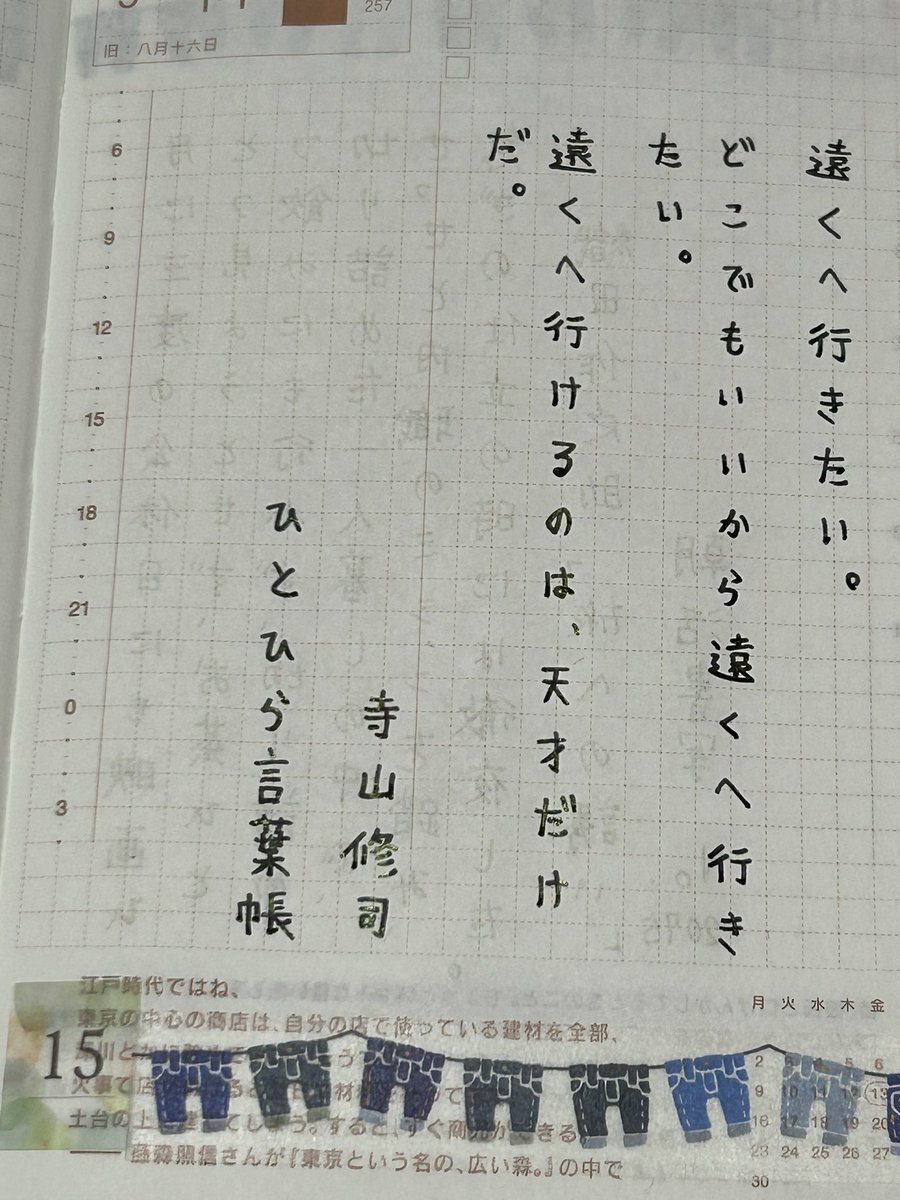 257
旧：八月十六日
遠くへ行きたい。
どこでもいいから遠くへ行き
たい。
遠くへ行けるのは、天才だけ
だ。
寺山修司
ひとひら言葉帳
6
9
12
15
18
21
0
3
江戸時代ではね、
東京の中心の商店は、自分の店で使っている建材を全部、
火事で店
土台の上
してしまう。すると、すぐ商売ができる。
藤森照信さんが『東京という名の、広い森。』の中で
15
月 火 水 木 金
2 3 4 5 6
9 10 11 12 13
16 17 18 19 20
23 24 25 26 27
30